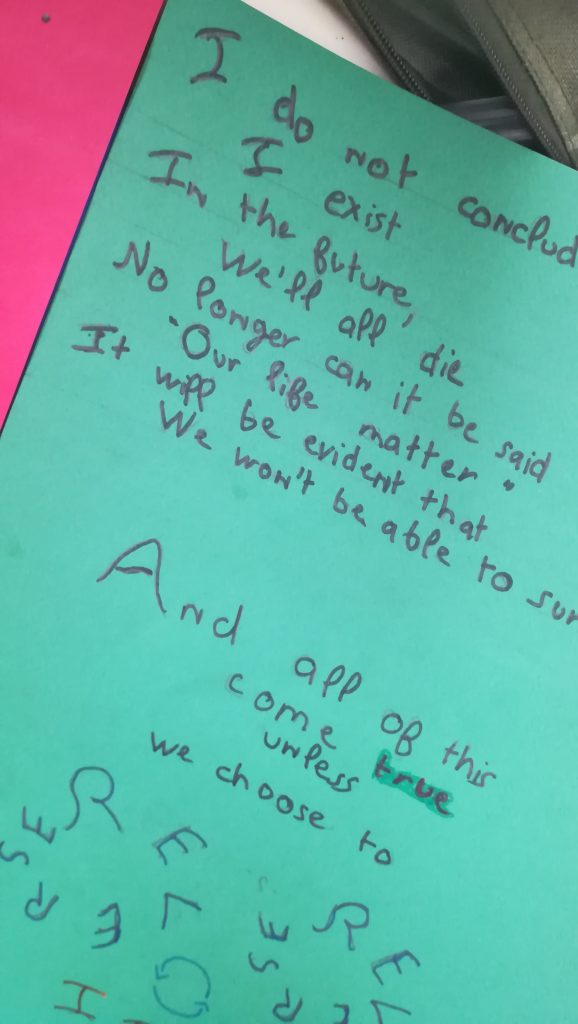 I do not conclud
I exist
In the future,
We'll all die
No longer can it be said
"Our life matter"
It will be evident that
We won't be able to sur
And all of this
come true
unless
we choose to
REVERSE
REVERSE
H